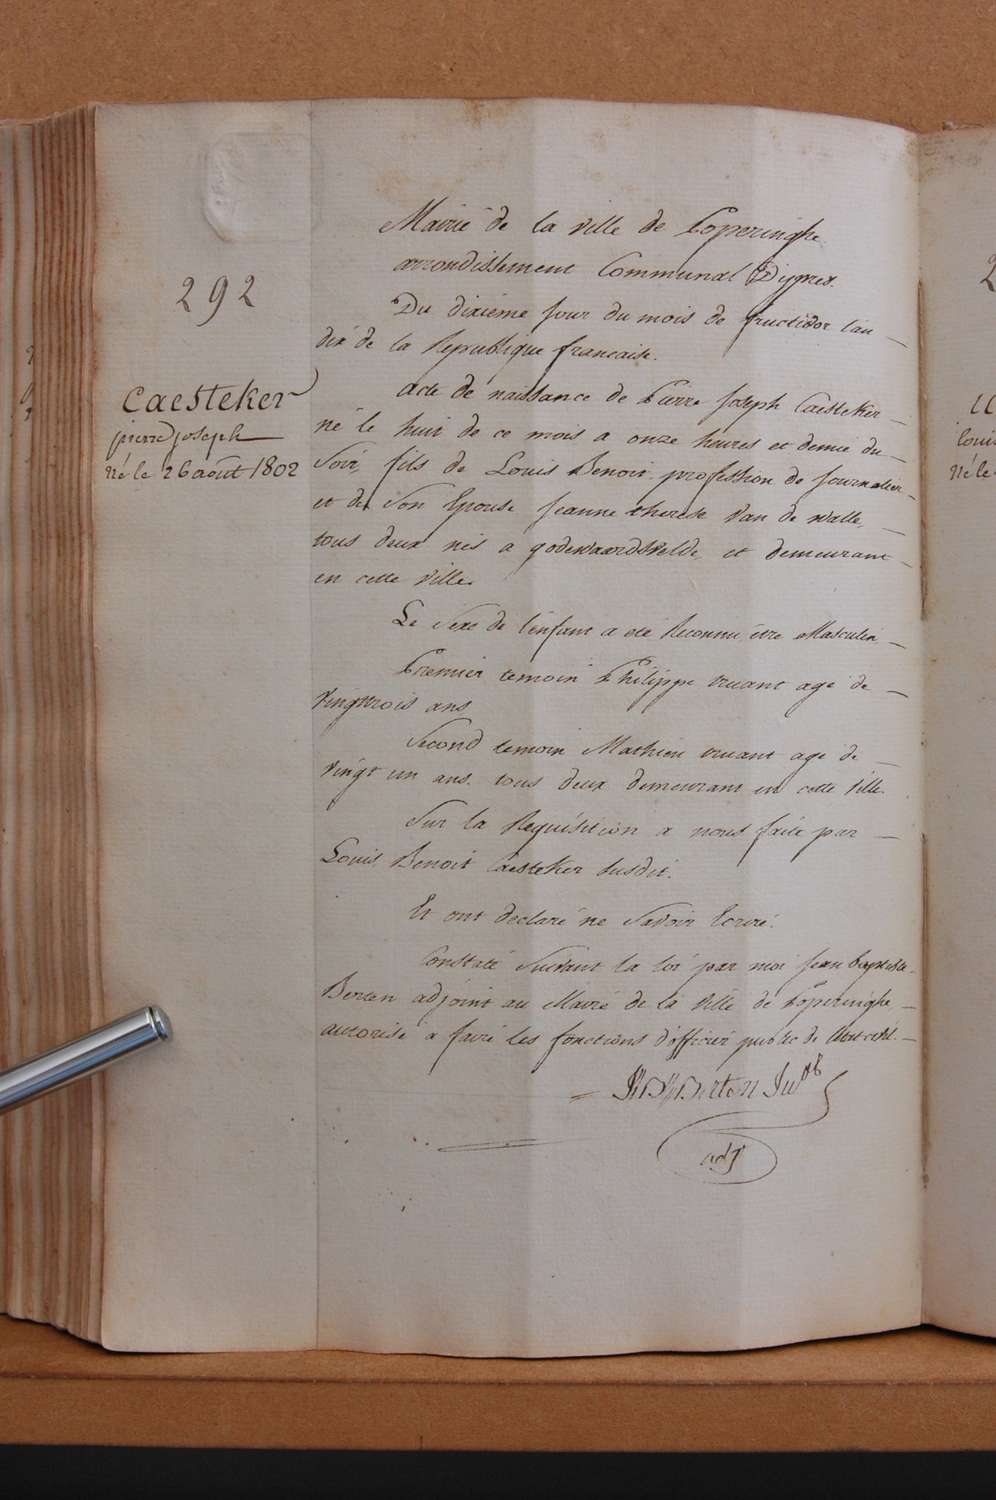 292
Caesteker
pierre joseph
né le 26 août 1802
Mairie de la ville de Poperinghe
arrondissement Communal D'ypres.
Du dixieme jour du mois de fructidor l'an
dix de la Republique francaise.
acte de naissance de Pierre Joseph Caesteker
né le huit de ce mois a onze heures et demie du
Soir, fils de Louis Benoit profession de journalier
et de Son Epouse Jeanne therese Van de walle,
tous deux nés a godewaardsvelde, et demeurant
en cette ville.
Le Sexe de l'enfant a été Reconnu être Masculin
Premier temoin Philippe vivant agé de
vingttrois ans
Second temoin Mathieu vivant agé de
vingt un ans. tous deux demeurant en cette ville.
Sur la Requisition a nous faite par
Louis Benoit Caesteker susdit.
Et ont declaré ne Savoir Ecrire.
Constaté Suivant la loi par moi Jean baptiste
Berten adjoint au Maire de la ville de Poperinghe,
autorisé a faire les fonctions d'officier public de l'état civil.
Berten
adj